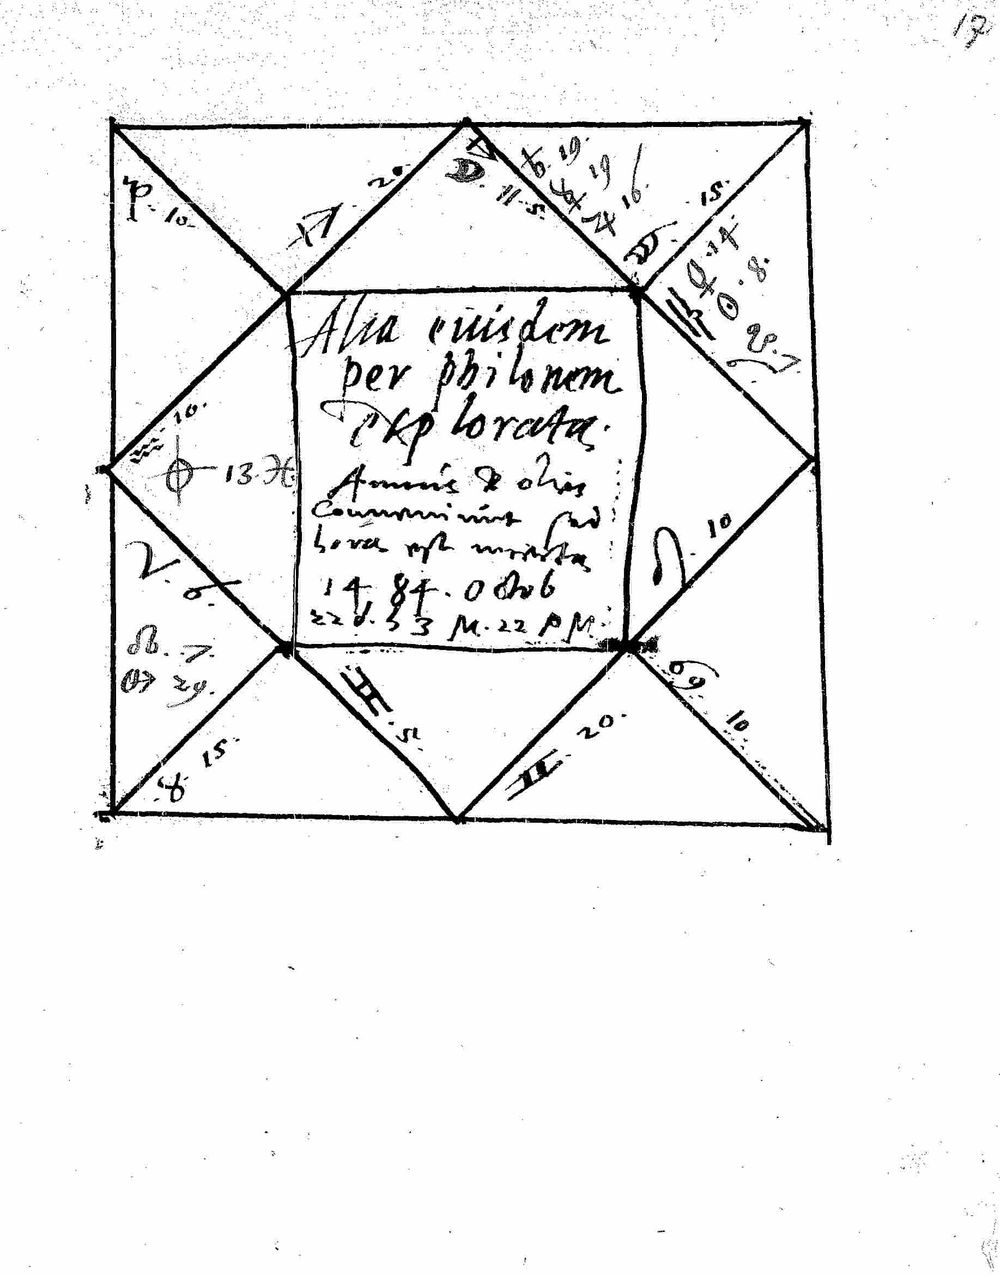 17
♑ 10.
♐ 20.
☽. 11. 5.
♄. 19.
☿ 19
♃ 16.
♏ 15.
♀. 14
☉. 8.
♎ ☋. 7
♒ 10.
⊕ 13. ♓
♈. 5.
☊. 7.
29.
♉ 15.
♊. 5.
♊ 20.
♋ 10.
♌ 10
Alia eiusdem
per philonem
explorata.
Annus & dies
Conveniunt sed
hora est incerta
1484. Octob
22 d. M. 22 P M.